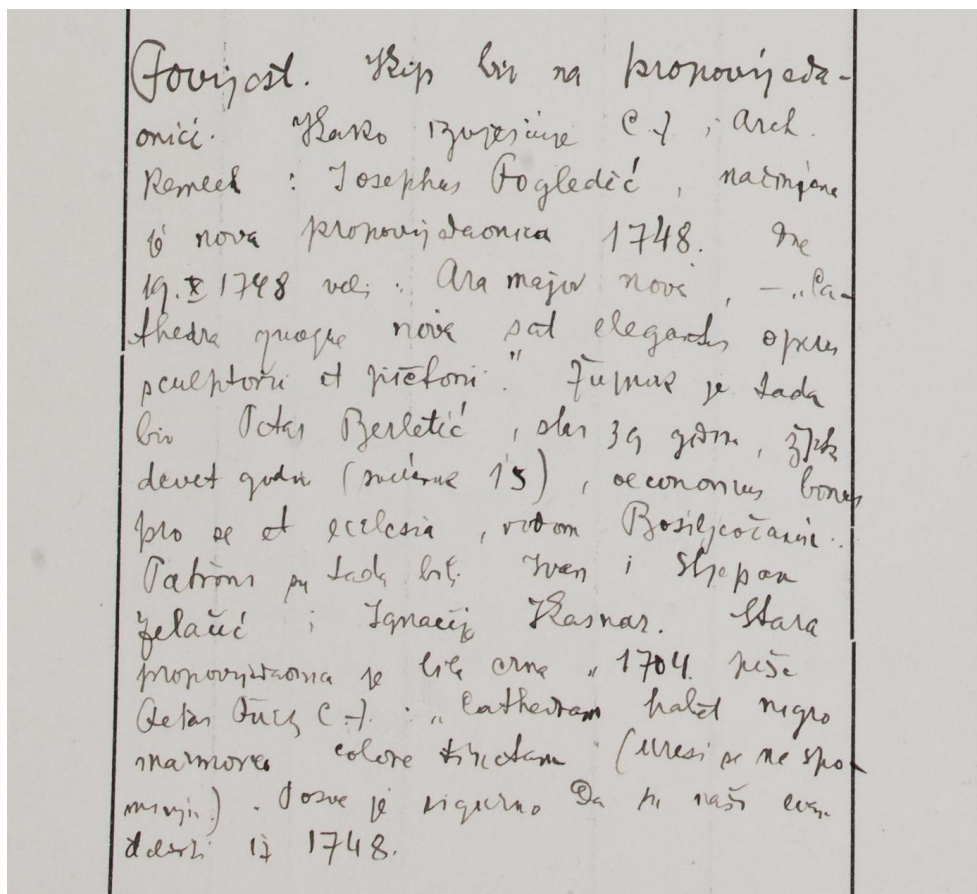 Povijest. Kip bio na propovijeda-
onici. Kako izvješćuje C-J i Arch.
Remech : Josephus Pogledić , načinjena
je nova propovijedaonica 1748. Dne
19. X 1748 veli : Ara major nova , — „Ca-
thedra quoque nova sat elegantis operis
sculptorii et pictorii." Župnik je tada
bio Petar Berletić , star 39 godina , župnik
devet godina (svećenik 15) , oeconomus bonus
pro se et ecclesia , rodom Bosiljevčanin.
Patroni su tada bili Ivan i Stjepan
Jelačić i Ignacije Kasnar. Stara
propovijedaonica je bila crna „ 1704. piše
Petar C-J. : „Cathedram habet nigro
marmoreo colore tinctam" (uresi se ne spo-
minju) . Posve je sigurno da su naši evan-
đelisti iz 1748.